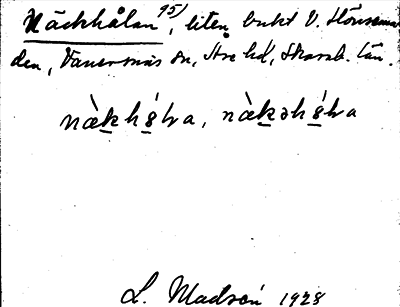 Näckhålan 95), liten bukt V. Hönsema
den, Vänersnäs sn, Åse hd, Skarab. län.
nàkhǻla, nàkəhǻla
L. Madsén 1928